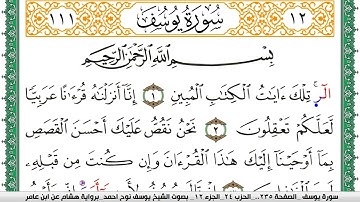 ١١١ سُورَةُ يُوسُفَ ١٢
بِسْمِ اللَّهِ الرَّحْمَٰنِ الرَّحِيمِ
الٓر تِلْكَ ءَايَٰتُ الْكِتَٰبِ الْمُبِينِ ١ إِنَّا أَنزَلْنَٰهُ قُرْءَٰنًا عَرَبِيًّا
لَعَلَّكُمْ تَعْقِلُونَ ٢ نَحْنُ نَقُصُّ عَلَيْكَ أَحْسَنَ الْقَصَصِ
بِمَا أَوْحَيْنَا إِلَيْكَ هَٰذَا الْقُرْءَانَ وَإِن كُنتَ مِن قَبْلِهِ
سورة يوسف _ الصفحة ٢٣٥ _ الحزب ٢٤_ الجزء ١٢ _ بصوت الشيخ يوسف نوح احمد_ برواية هشام عن ابن عامر